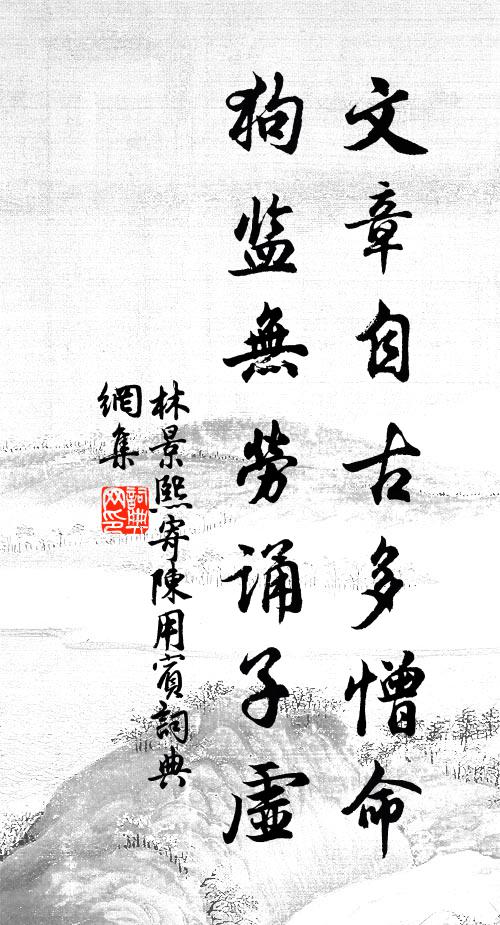 文章自古多憎命
狗监無勞诵子虛
林景熙寄陳用賓詞典
網集
詞典
网印